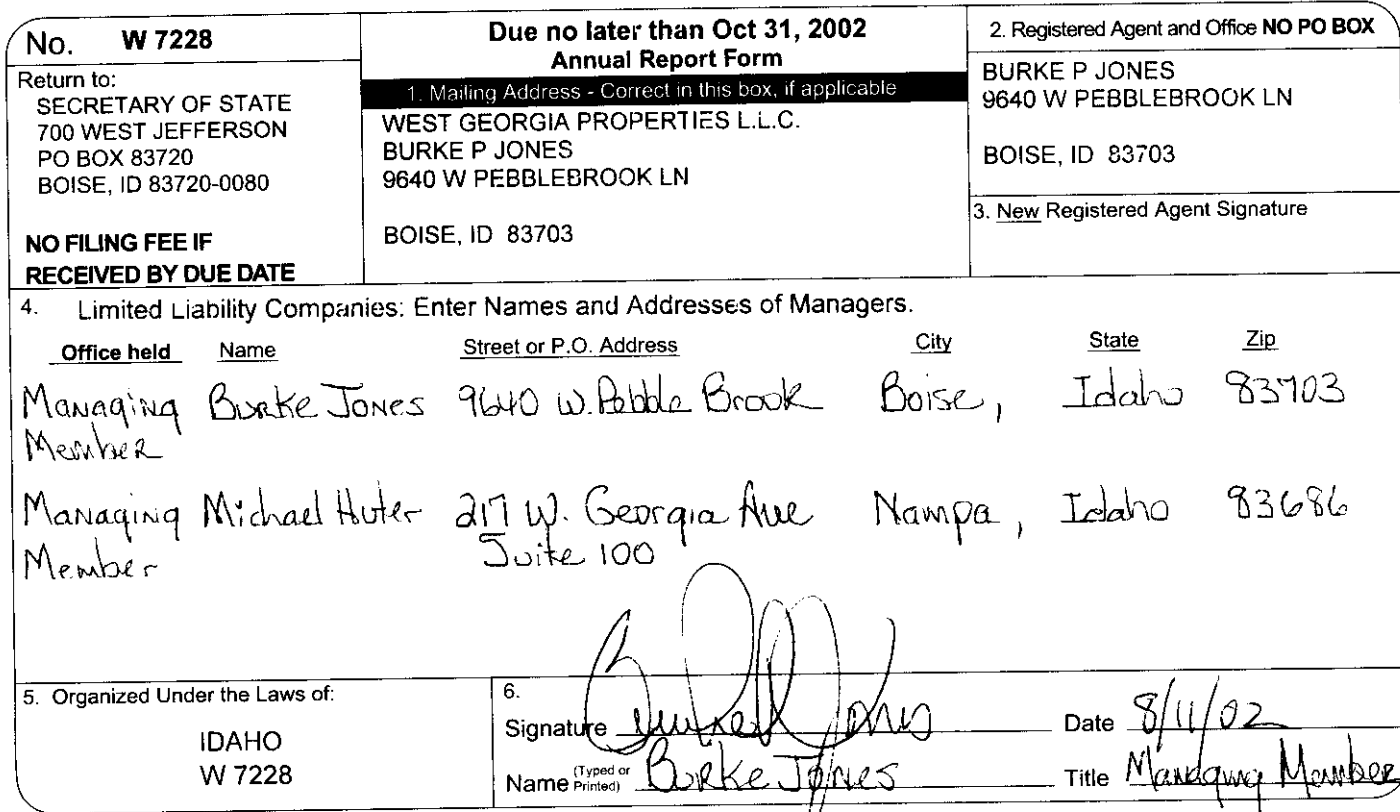 No. W 7228
Return to:
SECRETARY OF STATE
700 WEST JEFFERSON
PO BOX 83720
BOISE, ID 83720-0080
NO FILING FEE IF
RECEIVED BY DUE DATE
Due no later than Oct 31, 2002
Annual Report Form
1. Mailing Address - Correct in this box, if applicable
WEST GEORGIA PROPERTIES L.L.C.
BURKE P JONES
9640 W PEBBLEBROOK LN
BOISE, ID 83703
2. Registered Agent and Office NO PO BOX
BURKE P JONES
9640 W PEBBLEBROOK LN
BOISE, ID 83703
3. New Registered Agent Signature
4. Limited Liability Companies: Enter Names and Addresses of Managers.
Office held Name Street or P.O. Address City State Zip
Managing Burke Jones 9640 W. Pebble Brook Boise, Idaho 83703
Member
Managing Michael Huter 217 W. Georgia Ave Nampa, Idaho 83686
Member Suite 100
5. Organized Under the Laws of:
IDAHO
W 7228
6.
Signature Burke P Jones Date 8/11/02
Name (Typed or Printed) Burke Jones Title Managing Member